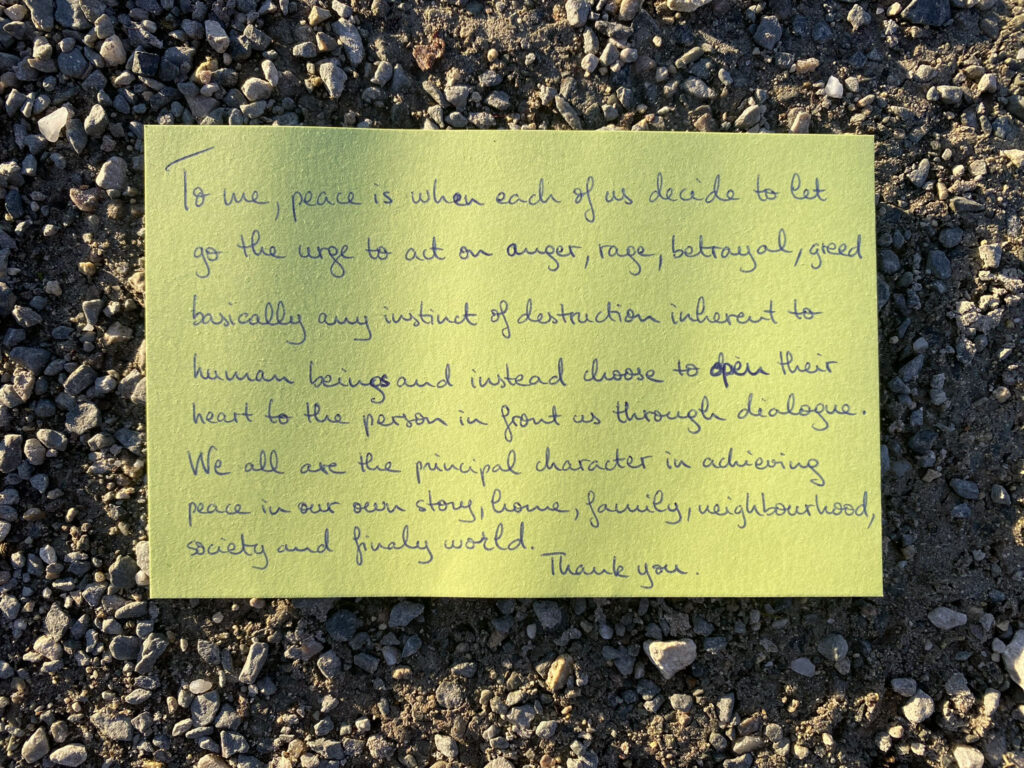 To me, peace is when each of us decide to let
go the urge to act on anger, rage, betrayal, greed
basically any instinct of destruction inherent to
human beings and instead choose to open their
heart to the person in front us through dialogue.
We all are the principal character in achieving
peace in our own story, home, family, neighbourhood,
society and finaly world.
Thank you.